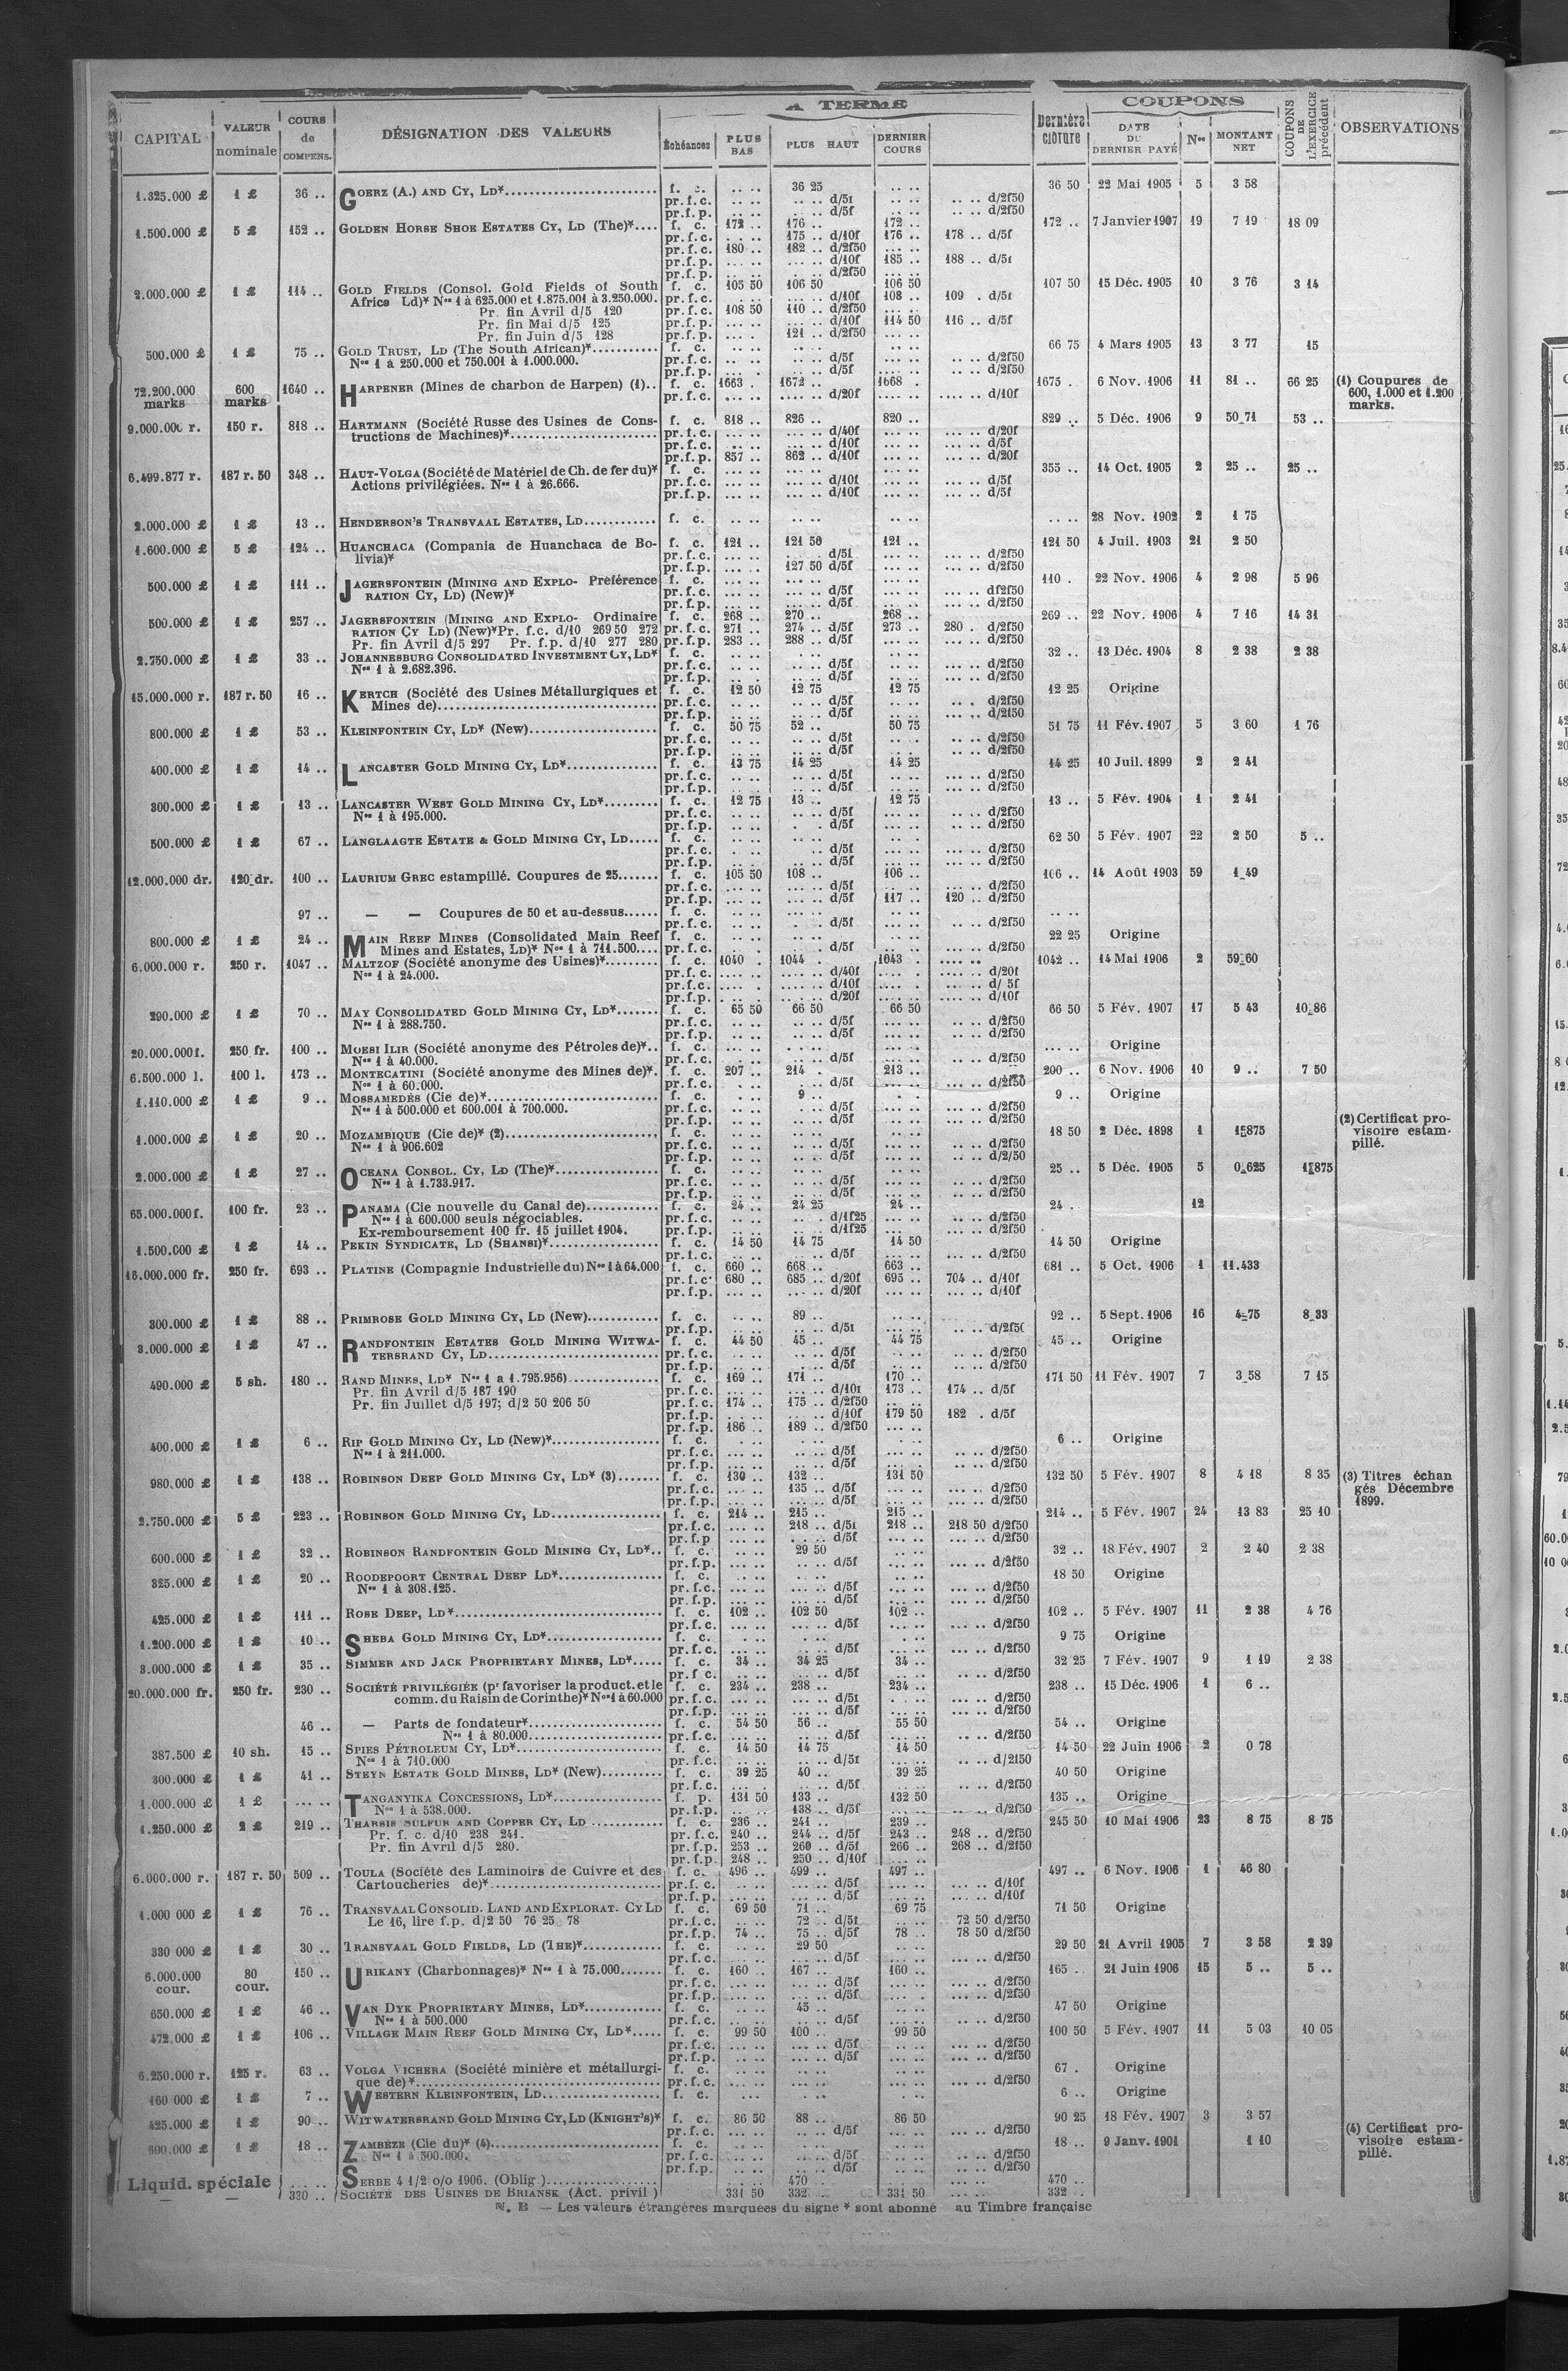 A TERME
COUPONS
CAPITAL VALEUR nominale COURS de COMPENS. DÉSIGNATION DES VALEURS Échéances PLUS BAS PLUS HAUT DERNIER COURS Dernière clôture DATE DU DERNIER PAYÉ Nos MONTANT NET COUPONS DE L'EXERCICE précédent OBSERVATIONS
1.325.000 £ 1 £ 36 .. GOERZ (A.) AND CY, LD*.... f. c. .. .. 36 25 .. .. 36 50 22 Mai 1905 5 3 58
pr.f.c. .. .. .. .. d/5f .. .. .. .. d/2f50
pr.f.p. .. .. .. .. d/5f .. .. .. .. d/2f50
1.500.000 £ 5 £ 152 .. GOLDEN HORSE SHOE ESTATES CY, LD (The)*.... f. c. 172 .. 176 .. 172 .. 172 .. 7 Janvier 1907 19 7 19 18 09
pr.f.c. .. .. 175 .. d/10f 176 .. 178 .. d/5f
pr.f.c. 180 .. 182 .. d/2f50 ... ..
pr.f.p. .. .. ... .. d/10f 185 .. 188 .. d/5f
pr.f.p. .. .. ... .. d/2f50 ... ..
2.000.000 £ 1 £ 114 .. GOLD FIELDS (Consol. Gold Fields of South f. c. 105 50 106 50 106 50 107 50 15 Déc. 1905 10 3 76 3 14
Africa Ld)* Nos 1 à 625.000 et 1.875.001 à 3.250.000. pr.f.c. ... .. ... .. d/10f 108 .. 109 . d/5f
Pr. fin Avril d/5 120 pr.f.c. 108 50 110 .. d/2f50 ... ..
Pr. fin Mai d/5 125 pr.f.p. ... .. ... .. d/10f 114 50 116 .. d/5f
Pr. fin Juin d/5 128 pr.f.p. ... .. 121 .. d/2f50 ... ..
500.000 £ 1 £ 75 .. GOLD TRUST, LD (The South African)*.... f. c. .. .. .. .. .. .. 66 75 4 Mars 1905 13 3 77 15
Nos 1 à 250.000 et 750.001 à 1.000.000. pr.f.c. .. .. .. .. d/5f .. .. .. .. d/2f50
pr.f.p. ... .. .. .. d/5f .. .. .. .. d/2f50
72.200.000 marks 600 marks 1640 .. HARPENER (Mines de charbon de Harpen) (1).. f. c. 1663 . 1672 .. 1668 . 1675 . 6 Nov. 1906 11 81 .. 66 25 (1) Coupures de
pr.f.c. .... .. .... .. d/20f .... .. .... .. d/10f 600, 1.000 et 1.200
marks.
9.000.000 r. 150 r. 818 .. HARTMANN (Société Russe des Usines de Cons- f. c. 818 .. 826 .. 820 .. 829 .. 5 Déc. 1906 9 50 71 53 ..
tructions de Machines)*.... pr.f.c. ... .. ... .. d/40f ... .. ... .. d/20f
pr.f.c. ... .. ... .. d/10f ... .. ... .. d/5f
pr.f.p. 857 .. 862 .. d/10f ... .. ... .. d/20f
6.499.877 r. 187 r. 50 348 .. HAUT-VOLGA (Société de Matériel de Ch. de fer du)* f. c. ... .. ... .. ... .. 355 .. 14 Oct. 1905 2 25 .. 25 ..
Actions privilégiées. Nos 1 à 26.666. pr.f.c. ... .. ... .. d/10f ... .. ... .. d/5f
pr.f.p. ... .. ... .. d/10f ... .. ... .. d/5f
2.000.000 £ 1 £ 13 .. HENDERSON'S TRANSVAAL ESTATES, LD.... f. c. .. .. .. .. .. .. .. .. 28 Nov. 1902 2 1 75
1.600.000 £ 5 £ 124 .. HUANCHACA (Compania de Huanchaca de Bo- f. c. 121 .. 121 50 121 .. 121 50 4 Juil. 1903 21 2 50
livia)* pr.f.c. ... .. ... .. d/5f ... .. ... .. d/2f50
pr.f.p. ... .. 127 50 d/5f ... .. ... .. d/2f50
500.000 £ 1 £ 111 .. JAGERSFONTEIN (MINING AND EXPLO- Préférence f. c. ... .. ... .. ... .. 110 . 22 Nov. 1906 4 2 98 5 96
RATION CY, LD) (New)* pr.f.c. ... .. ... .. d/5f ... .. ... .. df2f50
pr.f.p. ... .. ... .. d/5f ... .. ... .. d/2f50
500.000 £ 1 £ 257 .. JAGERSFONTEIN (MINING AND EXPLO- Ordinaire f. c. 268 .. 270 .. 268 .. 269 .. 22 Nov. 1906 4 7 16 14 31
RATION CY LD) (New)* Pr. f.c. d/10 269 50 272 pr.f.c. 271 .. 274 .. d/5f 273 .. 280 . d/2f50
Pr. fin Avril d/5 297 Pr. f.p. d/10 277 280 pr.f.p. 283 .. 288 .. d/5f ... .. ... .. d/2f50
2.750.000 £ 1 £ 33 .. JOHANNESBURG CONSOLIDATED INVESTMENT CY, LD* f. c. .. .. .. .. .. .. 32 .. 13 Déc. 1904 8 2 38 2 38
Nos 1 à 2.682.396. pr.f.c. .. .. .. .. d/5f .. .. .. .. d/2f50
pr.f.p. .. .. .. .. d/5f .. .. .. .. d/2f50
15.000.000 r. 187 r. 50 16 .. KERTCH (Société des Usines Métallurgiques et f. c. 12 50 12 75 12 75 12 25 Origine
Mines de).... pr.f.c. .. .. .. .. d/5f .. .. .. . d/2f50
pr.f.p. .. .. .. .. d/5f .. .. .. .. d/2f50
800.000 £ 1 £ 53 .. KLEINFONTEIN CY, LD* (New).... f. c. 50 75 52 .. 50 75 51 75 11 Fév. 1907 5 3 60 1 76
pr.f.c. .. .. .. .. d/5f .. .. .. .. d/2f50
pr.f.p. .. .. .. .. d/5f .. .. .. .. d/2f50
400.000 £ 1 £ 14 .. LANCASTER GOLD MINING CY, LD*.... f. c. 13 75 14 25 14 25 14 25 10 Juil. 1899 2 2 41
pr.f.c. .. .. .. .. d/5f .. .. ... .. d/2f50
pr.f.p. .. .. .. .. d/5f .. .. ... .. d/2f50
300.000 £ 1 £ 13 .. LANCASTER WEST GOLD MINING CY, LD*.... f. c. 12 75 13 .. 12 75 13 .. 5 Fév. 1904 1 2 41
Nos 1 à 195.000. pr.f.c. .. .. .. .. d/5f .. .. .. .. d/2f50
pr.f.p. .. .. .. .. d/5f .. .. .. .. d/2f50
500.000 £ 1 £ 67 .. LANGLAAGTE ESTATE & GOLD MINING CY, LD.... f. c. .. .. .. d/5f .. .. 62 50 5 Fév. 1907 22 2 50 5 ..
pr.f.c. .. .. .. .. d/5f .. .. .. .. d/2f50
pr.f.p. .. .. .. .. d/5f .. .. .. .. d/2f50
12.000.000 dr. 120 dr. 100 .. LAURIUM GREC estampillé. Coupures de 25.... f. c. 105 50 108 .. 106 .. 106 .. 14 Août 1903 59 1 49
pr.f.c. ... .. ... .. d/5f ... .. ... .. d/2f50
pr.f.p. ... .. ... .. d/5f 117 .. 120 .. d/2f50
97 .. — — Coupures de 50 et au-dessus.... f. c. .. .. .. .. .. .. .. ..
pr.f.c. ... .. ... .. d/5f ... .. ... .. d/2f50
800.000 £ 1 £ 24 .. MAIN REEF MINES (Consolidated Main Reef f. c. .. .. .. .. .. .. 22 25 Origine
Mines and Estates, LD)* Nos 1 à 711.500.... pr.f.c. .. . .. .. d/5f .. .. ... .. d/2f50
6.000.000 r. 250 r. 1047 .. MALTZOF (Société anonyme des Usines)*.... f. c. 1040 . 1044 . 1043 . 1042 .. 14 Mai 1906 2 59 60
Nos 1 à 24.000. pr.f.c. .... .. .... .. d/40f .... . .... .. d/20f
pr.f.c. .... . .... .. d/10f .... . .... .. d/ 5f
pr.f.p. .... . .... .. d/20f .... .. .... .. d/10f
290.000 £ 1 £ 70 .. MAY CONSOLIDATED GOLD MINING CY, LD*.... f. c. 65 50 66 50 66 50 66 50 5 Fév. 1907 17 5 43 10 86
Nos 1 à 288.750. pr.f.c. .. .. .. .. d/5f .. .. ... .. d/2f50
pr.f.p. .. .. .. .. d/5f .. .. ... .. d/2f50
20.000.000 f. 250 fr. 100 .. MOESI ILIR (Société anonyme des Pétroles de)*.. f. c. ... .. ... .. ... .. ... .. Origine
Nos 1 à 40.000. pr.f.c. . .. .. .. d/5f ... .. ... .. d/2f50
6.500.000 l. 100 l. 173 .. MONTECATINI (Société anonyme des Mines de)*. f. c. 207 .. 214 . 213 .. 200 .. 6 Nov. 1906 10 9 .. 7 50
Nos 1 à 60.000. pr.f.c. . .. ... .. d/5f ... .. ... .. d/2f50
1.110.000 £ 1 £ 9 .. MOSSAMEDÈS (Cie de)*.... f. c. . .. 9 .. . .. 9 .. Origine
Nos 1 à 500.000 et 600.001 à 700.000. pr.f.c. .. .. .. .. d/5f .. .. ... .. d/2f50
pr.f.p. .. .. .. .. d/5f .. .. ... .. d/2f50 (2) Certificat pro-
1.000.000 £ 1 £ 20 .. MOZAMBIQUE (Cie de)* (2).... f. c. .. .. .. .. .. .. 18 50 2 Déc. 1898 1 1 875 visoire estam-
Nos 1 à 906.602 pr.f.c. .. .. .. .. d/5f .. .. ... .. d/2f50 pillé.
pr.f.p. .. .. .. .. d/5f .. .. ... .. d/2/50
2.000.000 £ 1 £ 27 .. OCEANA CONSOL. CY, LD (The)*.... f. c. .. .. .. .. .. .. 25 .. 5 Déc. 1905 5 0 625 1 875
Nos 1 à 1.733.917. pr.f.c. .. .. .. .. d/5f .. .. .. .. d/2f50
pr.f.p. .. .. .. .. d/5f .. .. .. .. d/2f50
65.000.000 f. 100 fr. 23 .. PANAMA (Cie nouvelle du Canal de).... f. c. 24 .. 24 25 24 .. 24 . 12
Nos 1 à 600.000 seuls négociables. pr.f.c. .. .. .. . d/1f25 .. .. ... .. d/2f50
Ex-remboursement 100 fr. 15 juillet 1904. pr.f.p. .. .. .. .. d/1f25 .. .. ... .. d/2f50
1.500.000 £ 1 £ 14 .. PEKIN SYNDICATE, LD (SHANSI)*.... f. c. 14 50 14 75 14 50 14 50 Origine
pr.f.c. .. .. .. .. d/5f .. .. ... .. d/2f50
16.000.000 fr. 250 fr. 693 .. PLATINE (Compagnie Industrielle du) Nos 1 à 64.000 f. c. 660 .. 668 .. 663 .. 681 .. 5 Oct. 1906 1 11.433
pr.f.c. 680 .. 685 .. d/20f 695 .. 704 .. d/10f
pr.f.p. ... .. ... .. d/20f ... .. ... .. d/10f
300.000 £ 1 £ 88 .. PRIMROSE GOLD MINING CY, LD (New).... f. c. .. .. 89 .. .. .. 92 .. 5 Sept. 1906 16 4 75 8 33
pr.f.p. .. .. .. .. d/5f .. .. .. .. d/2f50
3.000.000 £ 1 £ 47 .. RANDFONTEIN ESTATES GOLD MINING WITWA- f. c. 44 50 45 .. 44 75 45 .. Origine
TERSRAND CY, LD.... pr.f.c. .. .. .. .. d/5f .. .. ... .. d/2f50
pr.f.p. .. .. .. .. d/5f .. .. ... .. d/2f50
490.000 £ 5 sh. 180 .. RAND MINES, LD* Nos 1 a 1.795.956).... f. c. 169 .. 171 .. 170 .. 171 50 11 Fév. 1907 7 3 58 7 15
Pr. fin Avril d/5 187 190 pr.f.c. ... .. ... .. d/10f 173 .. 174 .. d/5f
Pr. fin Juillet d/5 197; d/2 50 206 50 pr.f.c. 174 .. 175 .. d/2f50 ... ..
pr.f.p. ... .. ... .. d/10f 179 50 182 . d/5f
pr.f.p. 186 .. 189 .. d/2f50 ... ..
400.000 £ 1 £ 6 .. RIP GOLD MINING CY, LD (New)*.... f. c. . .. . .. . .. 6 .. Origine
Nos 1 à 211.000. pr.f.c. ... .. .. .. d/5f ... .. .. .. d/2f50
pr.f.p. ... .. .. .. d/5f ... .. .. .. d/2f50
980.000 £ 1 £ 138 .. ROBINSON DEEP GOLD MINING CY, LD* (3).... f. c. 130 .. 132 .. 131 50 132 50 5 Fév. 1907 8 4 18 8 35 (3) Titres échan
pr.f.c. ... .. 135 .. d/5f ... .. ... .. d/2f50 gés Décembre
pr.f.p. ... .. ... .. d/5f ... .. ... .. d/2f50 1899.
2.750.000 £ 5 £ 223 .. ROBINSON GOLD MINING CY, LD.... f. c. 214 .. 215 .. 215 .. 214 .. 5 Fév. 1907 24 13 83 25 10
pr.f.c. ... .. 218 .. d/5f 218 .. 218 50 d/2f50
pr.f.p ... .. ... .. d/5f ... .. ... .. d/2f50
600.000 £ 1 £ 32 .. ROBINSON RANDFONTEIN GOLD MINING CY, LD*.. f. c. .. .. 29 50 .. .. 32 .. 18 Fév. 1907 2 2 40 2 38
pr.f.p. ... .. .. .. d/5f ... .. ... .. d/2f50
325.000 £ 1 £ 20 .. ROODEPOORT CENTRAL DEEP LD*.... f. c. .. .. .. .. .. .. 18 50 Origine
Nos 1 à 308.125. pr.f.c. ... .. ... .. d/5f ... .. ... .. d/2f50
pr.f.p. ... .. ... .. d/5f ... .. ... .. d/2f50
425.000 £ 1 £ 111 .. ROSE DEEP, LD*.... f. c. 102 .. 102 50 102 .. 102 .. 5 Fév. 1907 11 2 38 4 76
pr.f.c. ... .. ... .. d/5f ... .. ... .. d/2f50
1.200.000 £ 1 £ 10 .. SHEBA GOLD MINING CY, LD*.... f. c. . .. . .. . .. 9 75 Origine
pr.f.c. ... .. ... .. d/5f ... .. ... .. d/2f50
3.000.000 £ 1 £ 35 .. SIMMER AND JACK PROPRIETARY MINES, LD*.... f. c. 34 .. 34 25 34 .. 32 25 7 Fév. 1907 9 1 19 2 38
pr.f c. .. .. .. .. d/5f .. .. ... .. d/2f50
20.000.000 fr. 250 fr. 230 .. SOCIÉTÉ PRIVILÉGIÉE (pr favoriser la product. et le f. c. 234 .. 238 .. 234 .. 238 .. 15 Déc. 1906 1 6 ..
comm. du Raisin de Corinthe)* Nos 1 à 60.000 pr.f.c. ... .. ... .. d/5f . . .. ... .. d/2f50
pr.f.p. ... .. ... .. d/5f ... .. ... .. d/2f50
46 .. — Parts de fondateur*.... f. c. 54 50 56 .. 55 50 54 .. Origine
Nos 1 à 80.000.... pr.f.c. ... .. ... .. d/5f ... .. ... .. d/2f50
387.500 £ 10 sh. 15 .. SPIES PÉTROLEUM CY, LD*.... f. c. 14 50 14 75 14 50 14 50 22 Juin 1906 2 0 78
Nos 1 à 710.000 pr.f.c. .. .. .. .. d/5f .. .. .. .. d/2f50
300.000 £ 1 £ 41 .. STEYN ESTATE GOLD MINES, LD* (New).... f. c. 39 25 40 .. 39 25 40 50 Origine
pr.f.c. ... . ... .. d/5f ... .. ... .. d/2f50
1.000.000 £ 1 £ ... .. TANGANYIKA CONCESSIONS, LD*.... f. p. 131 50 133 .. 132 50 135 .. Origine
Nos 1 à 538.000. pr.f.p. ... .. 138 .. d/5f ... .. ... .. d/2f50
1.250.000 £ 2 £ 219 .. THARSIS SULFUR AND COPPER CY, LD .... f. c. 236 .. 241 .. 239 .. 245 50 10 Mai 1906 23 8 75 8 75
Pr. f. c. d/10 238 241. pr.f.c. 240 .. 244 .. d/5f 243 .. 248 .. d/2f50
Pr. fin Avril d/5 280. pr.f.p. 253 .. 260 .. d/5f 266 .. 268 .. d/2f50
pr.f.p. 248 .. 250 .. d/10f ... ..
6.000.000 r. 187 r. 50 509 .. TOULA (Société des Laminoirs de Cuivre et des f. c. 496 .. 499 .. 497 .. 497 .. 6 Nov. 1906 1 46 80
Cartoucheries de)*.... pr.f.c. ... .. ... .. d/5f ... .. ... .. d/10f
pr.f.p. ... .. ... .. d/5f ... .. ... .. d/10f
1.000 000 £ 1 £ 76 .. TRANSVAAL CONSOLID. LAND AND EXPLORAT. CY LD f. c. 69 50 71 .. 69 75 71 50 Origine
Le 16, lire f.p. d/2 50 76 25 78 pr.f.c. .. .. 72 .. d/5f .. .. 72 50 d/2f50
pr.f.p. 74 .. 75 .. d/5f 78 .. 78 50 d/2f50
330 000 £ 1 £ 30 .. TRANSVAAL GOLD FIELDS, LD (THE)*.... f. c. .. .. 29 50 .. .. 29 50 21 Avril 1905 7 3 58 2 39
pr.f.c. ... .. ... .. d/5f ... .. ... .. d/2f50
6.000.000 cour. 80 cour. 150 .. URIKANY (Charbonnages)* Nos 1 à 75.000.... f. c. 160 .. 167 .. 160 .. 165 .. 21 Juin 1906 15 5 .. 5 ..
pr.f.c. ... .. ... .. d/5f ... .. ... .. d/2f50
pr.f.p. ... .. ... .. d/5f ... . ... .. d/2f50
650.000 £ 1 £ 46 .. VAN DYK PROPRIETARY MINES, LD*.... f. c. .. .. 45 .. .. .. 47 50 Origine
Nos 1 à 500.000 pr.f.c. ... .. ... .. d/5f ... .. ... .. d/2f50
472.000 £ 1 £ 106 .. VILLAGE MAIN REEF GOLD MINING CY, LD*.... f. c. 99 50 100 .. 99 50 100 50 5 Fév. 1907 11 5 03 10 05
pr.f.c. ... .. ... .. d/5f ... .. ... .. d/2f50
pr.f.p. ... .. ... .. d/5f ... .. ... .. d/2f50
6.250.000 r. 125 r. 63 .. VOLGA VICHERA (Société minière et métallurgi- f. c. .. .. .. .. .. .. 67 . Origine
que de)*.... pr.f.c. ... .. ... .. ... .. ... .. d/2f50
160 000 £ 1 £ 7 .. WESTERN KLEINFONTEIN, LD.... f. c. ... .. .. .. 6 .. Origine
425.000 £ 1 £ 90 .. WITWATERSRAND GOLD MINING CY, LD (KNIGHT'S)* f. c. 86 50 88 .. 86 50 90 25 18 Fév. 1907 3 3 57
pr.f.c. ... .. ... .. d/5f ... .. ... .. d/2f50 (4) Certificat pro-
600.000 £ 1 £ 18 .. ZAMBÈZE (Cie du)* (4).... f. c. .. .. .. .. .. .. 18 .. 9 Janv. 1901 1 10 visoire estam-
Nos 1 à 500.000. pr.f.c. .. .. .. .. d/5f .. .. .. .. d/2f50 pillé.
pr.f.p. .. .. .. .. d/5f .. .. .. .. d/2f50
Liquid. spéciale ... .. SERBE 4 1/2 o/o 1906. (Oblig.).... ... .. 470 .. ... .. 470 ..
— — 330 .. SOCIÉTÉ DES USINES DE BRIANSK (Act. privil ) 331 50 332 .. 331 50 332 ..
N. B — Les valeurs étrangères marquées du signe * sont abonné au Timbre française